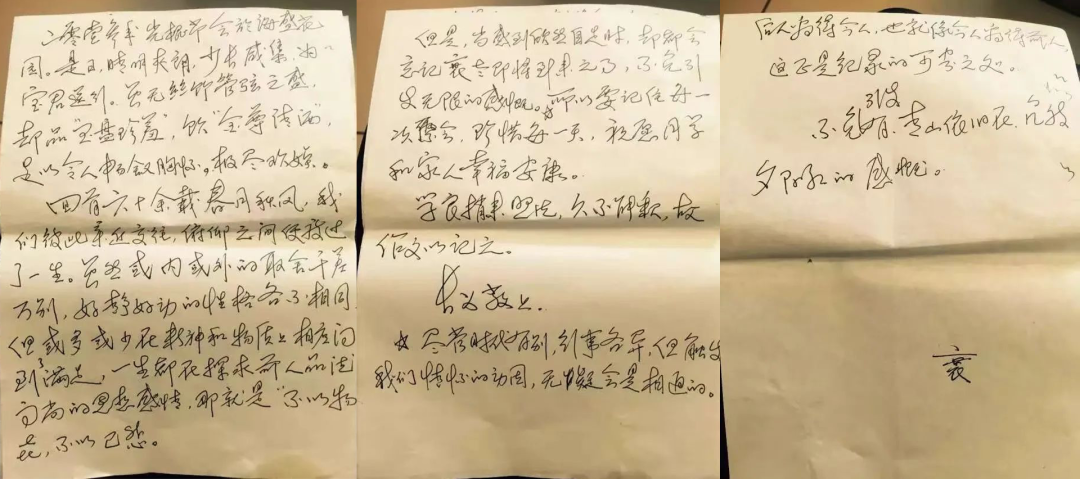 二零壹年光棍节会于海盛花
园。是日，晴明爽朗，少长咸集，由
宝君延引。虽无丝竹管弦之盛，
却品“玉盘珍羞”，饮“金尊清酒”，
足以令人畅叙胸怀。极尽欢娱。
回首六十余载春月秋风，我
们彼此亲近交往，俯仰之间便接近
了一生。虽然或内或外的取舍千差
万别，好静好动的性格各不相同
但或多或少在精神和物质上相应间
到了满足，一生都在探求前人品德
高尚的思想感情，那就是“不以物
喜，不以己悲。
但是，当感到欣然自足时，却都会
忘记衰老即将到来之了，不免引
发无限的感慨。☆所以要记住每一
次聚会，珍惜每一天，祝愿同学
和家人幸福安康。
学良捎来照片，久不释手，故
作文以记之。
长义敬上.
☆尽管时代有别，行事各异，但触发
我们情怀的动因，无疑会是相通的。
后人看得今人，也就像今人看得前人，
这正是纪录的可贵之处。
引发
不免有青山依旧在，几度
夕阳红的感慨。
衰